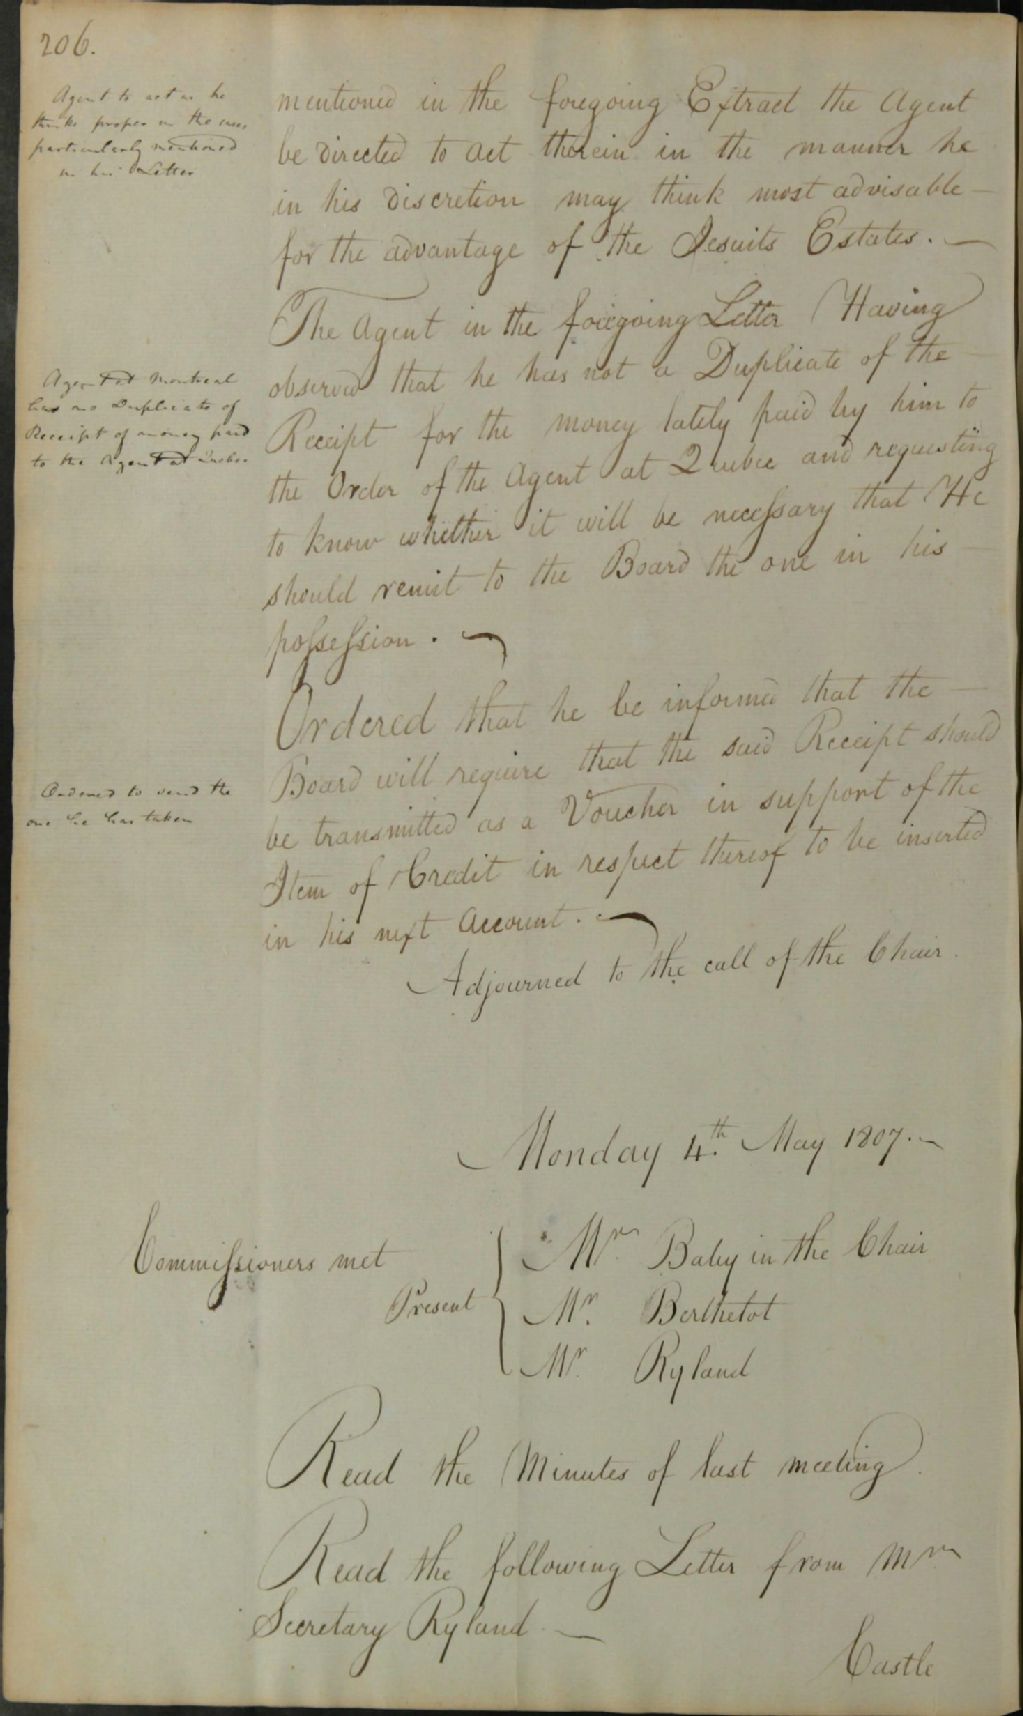 206.
Agent to act as he
thinks proper in the cases
particularly mentioned
in his Letter
mentioned in the foregoing Extract the Agent
be directed to act therein in the manner he
in his discretion may think most advisable —
for the advantage of the Jesuits Estates. —
The Agent in the foregoing Letter Having
observed that he has not a Duplicate of the
Agent at Montreal
has no Duplicate of
Receipt of money paid
to the Agent at Quebec
Receipt for the money lately paid by him to
the Order of the Agent at Quebec and requesting
to know whether it will be necessary that He
should remit to the Board the one in his —
possession. —
Ordered that he be informed that the —
Board will require that the said Receipt should
Ordered to send the
one he has taken
be transmitted as a Voucher in support of the
Item of Credit in respect thereof to be inserted
in his next Account. —
Adjourned to the call of the Chair.
Monday 4th. May 1807. —
Commissioners met
Present
Mr. Baby in the Chair
Mr. Berthelot
Mr. Ryland
Read the Minutes of last meeting.
Read the following Letter from Mr.
Secretary Ryland. —
Castle